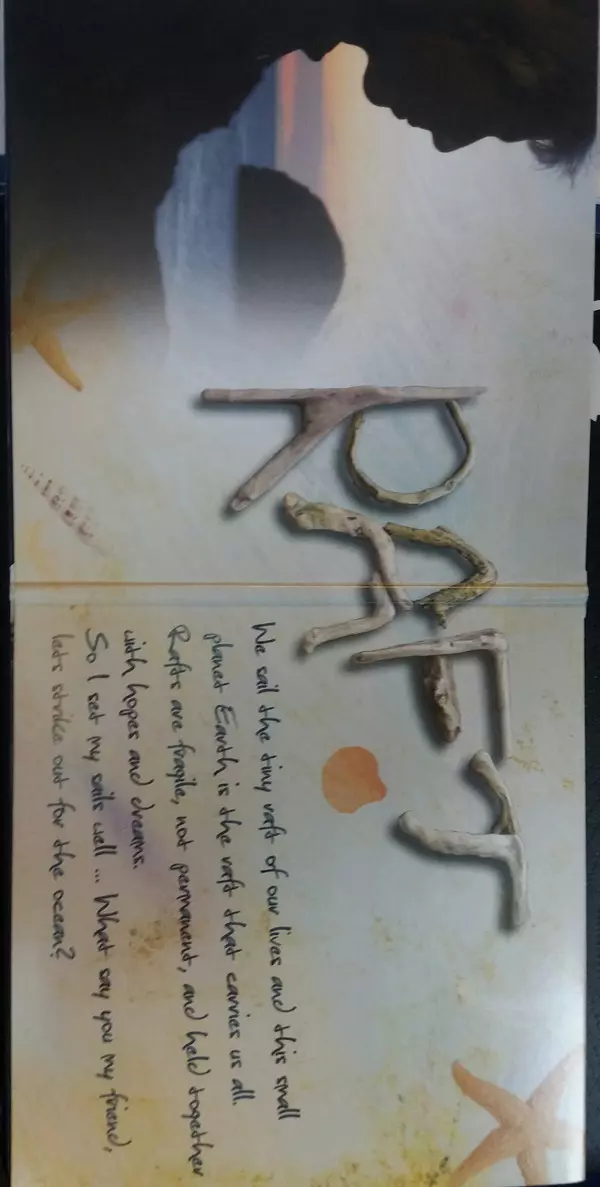 RAFT
We sail the tiny raft of our lives and this small
planet Earth is the raft that carries us all.
Rafts are fragile, not permanent, and held together
with hopes and dreams.
So I set my sails well ... What say you my friend,
lets strike out for the ocean?